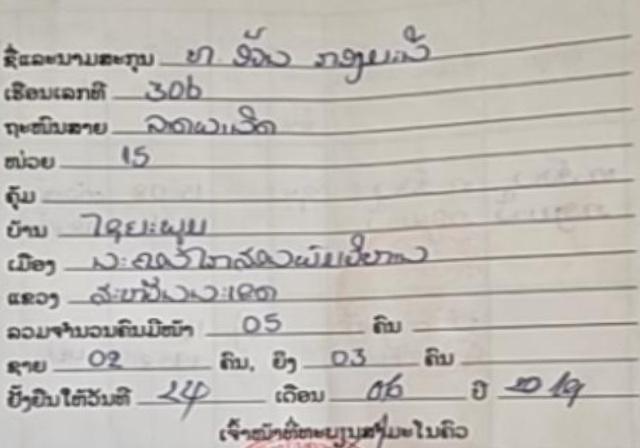 ຊື່ແລະນາມສະກຸນ ທ
ເຮືອນເລກທີ 306
ຖະໜົນສາຍ
ໜ່ວຍ 15
ຄຸ້ມ
ບ້ານ ໄຊຍະພູມ
ເມືອງ ນະຄອນໄກສອນພົມວິຫານ
ແຂວງ ສະຫວັນນະເຂດ
ລວມຈຳນວນຄົນມີໜ້າ 05 ຄົນ
ຊາຍ 02 ຄົນ, ຍິງ 03 ຄົນ
ຢັ້ງຢືນໃຫ້ວັນທີ 24 ເດືອນ 06 ປີ 2019
ເຈົ້າໜ້າທີ່ທະບຽນສຳມະໂນຄົວ